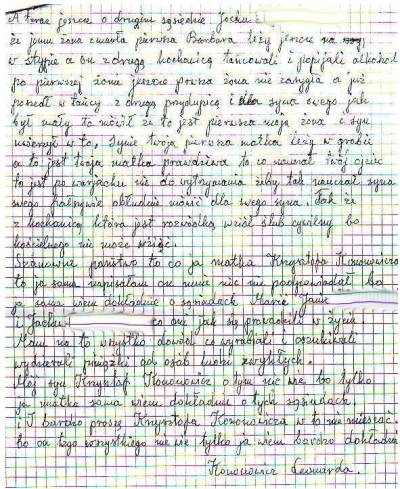 A teraz jeszcze o drugim sąsiedzie Jacku:
że jemu żona zmarła pierwsza Barbara leży jeszcze na
w stypie a on z drugą kochanicą tańcowali i popijali alkohol
po pierwszej żonie jeszcze pierwsza żona nie zasnęła a już
poszedł w tańcy z drugą przydupicą i dla syna swego jak
był mały to mówił że to jest pierwsza moja żona i syn
uwierzył w to. Synie twoja pierwsza matka leży w grobie
a to jest twoja matka prawdziwa to co nauczał twój ojciec
to jest po wariacku nie do wytrzymania żeby tak nauczał syna
swego fałszywie obłudnie mówić dla swego syna. Tak że
z kochanicą która jest rozwódką wziął ślub cywilny bo
kościelnego nie może wziąć.
Szanowne państwo to co ja matka Krzysztofa Kononowicza
to ja sama napisałam on mnie nic nie podpowiadał bo
ja sama wiem dokładnie o sąsiadach Marię Janie
i Jacku co oni jak się prowadzili w życiu
Mam na to wszystko dowód co wyrabiali i oszukiwali
wydzierali pieniążki od osób ludzi zwykłych.
Mój syn Krzysztof Kononowicz o tym nic nie wie bo tylko
ja matka sama wiem dokładnie o tych sąsiadach.
i I bardzo proszę Krzysztofa Kononowicza w to nie mieszać
bo on tego wszystkiego nie wie tylko ja wiem bardzo dokładnie
Kononowicz Leonarda.